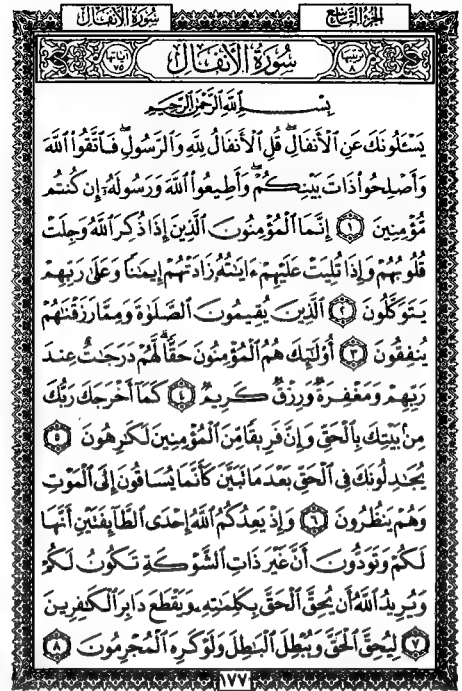 سُورَةُ الأَنفَالِ
الجُزْءُ التَّاسِعُ
سُورَةُ الأَنفَالِ
ترتيبها ٨
آياتها ٧٥
بِسْمِ ٱللَّهِ ٱلرَّحْمَٰنِ ٱلرَّحِيمِ
يَسْـَٔلُونَكَ عَنِ ٱلْأَنفَالِۖ قُلِ ٱلْأَنفَالُ لِلَّهِ وَٱلرَّسُولِۖ فَٱتَّقُوا۟ ٱللَّهَ
وَأَصْلِحُوا۟ ذَاتَ بَيْنِكُمْۖ وَأَطِيعُوا۟ ٱللَّهَ وَرَسُولَهُۥٓ إِن كُنتُم
مُّؤْمِنِينَ ١ إِنَّمَا ٱلْمُؤْمِنُونَ ٱلَّذِينَ إِذَا ذُكِرَ ٱللَّهُ وَجِلَتْ
قُلُوبُهُمْ وَإِذَا تُلِيَتْ عَلَيْهِمْ ءَايَٰتُهُۥ زَادَتْهُمْ إِيمَٰنًا وَعَلَىٰ رَبِّهِمْ
يَتَوَكَّلُونَ ٢ ٱلَّذِينَ يُقِيمُونَ ٱلصَّلَوٰةَ وَمِمَّا رَزَقْنَٰهُمْ
يُنفِقُونَ ٣ أُو۟لَٰٓئِكَ هُمُ ٱلْمُؤْمِنُونَ حَقًّاۚ لَّهُمْ دَرَجَٰتٌ عِندَ
رَبِّهِمْ وَمَغْفِرَةٌ وَرِزْقٌ كَرِيمٌ ٤ كَمَآ أَخْرَجَكَ رَبُّكَ
مِنۢ بَيْتِكَ بِٱلْحَقِّ وَإِنَّ فَرِيقًا مِّنَ ٱلْمُؤْمِنِينَ لَكَٰرِهُونَ ٥
يُجَٰدِلُونَكَ فِى ٱلْحَقِّ بَعْدَمَا تَبَيَّنَ كَأَنَّمَا يُسَاقُونَ إِلَى ٱلْمَوْتِ
وَهُمْ يَنظُرُونَ ٦ وَإِذْ يَعِدُكُمُ ٱللَّهُ إِحْدَى ٱلطَّآئِفَتَيْنِ أَنَّهَا
لَكُمْ وَتَوَدُّونَ أَنَّ غَيْرَ ذَاتِ ٱلشَّوْكَةِ تَكُونُ لَكُمْ
وَيُرِيدُ ٱللَّهُ أَن يُحِقَّ ٱلْحَقَّ بِكَلِمَٰتِهِۦ وَيَقْطَعَ دَابِرَ ٱلْكَٰفِرِينَ
٧ لِيُحِقَّ ٱلْحَقَّ وَيُبْطِلَ ٱلْبَٰطِلَ وَلَوْ كَرِهَ ٱلْمُجْرِمُونَ ٨
١٧٧